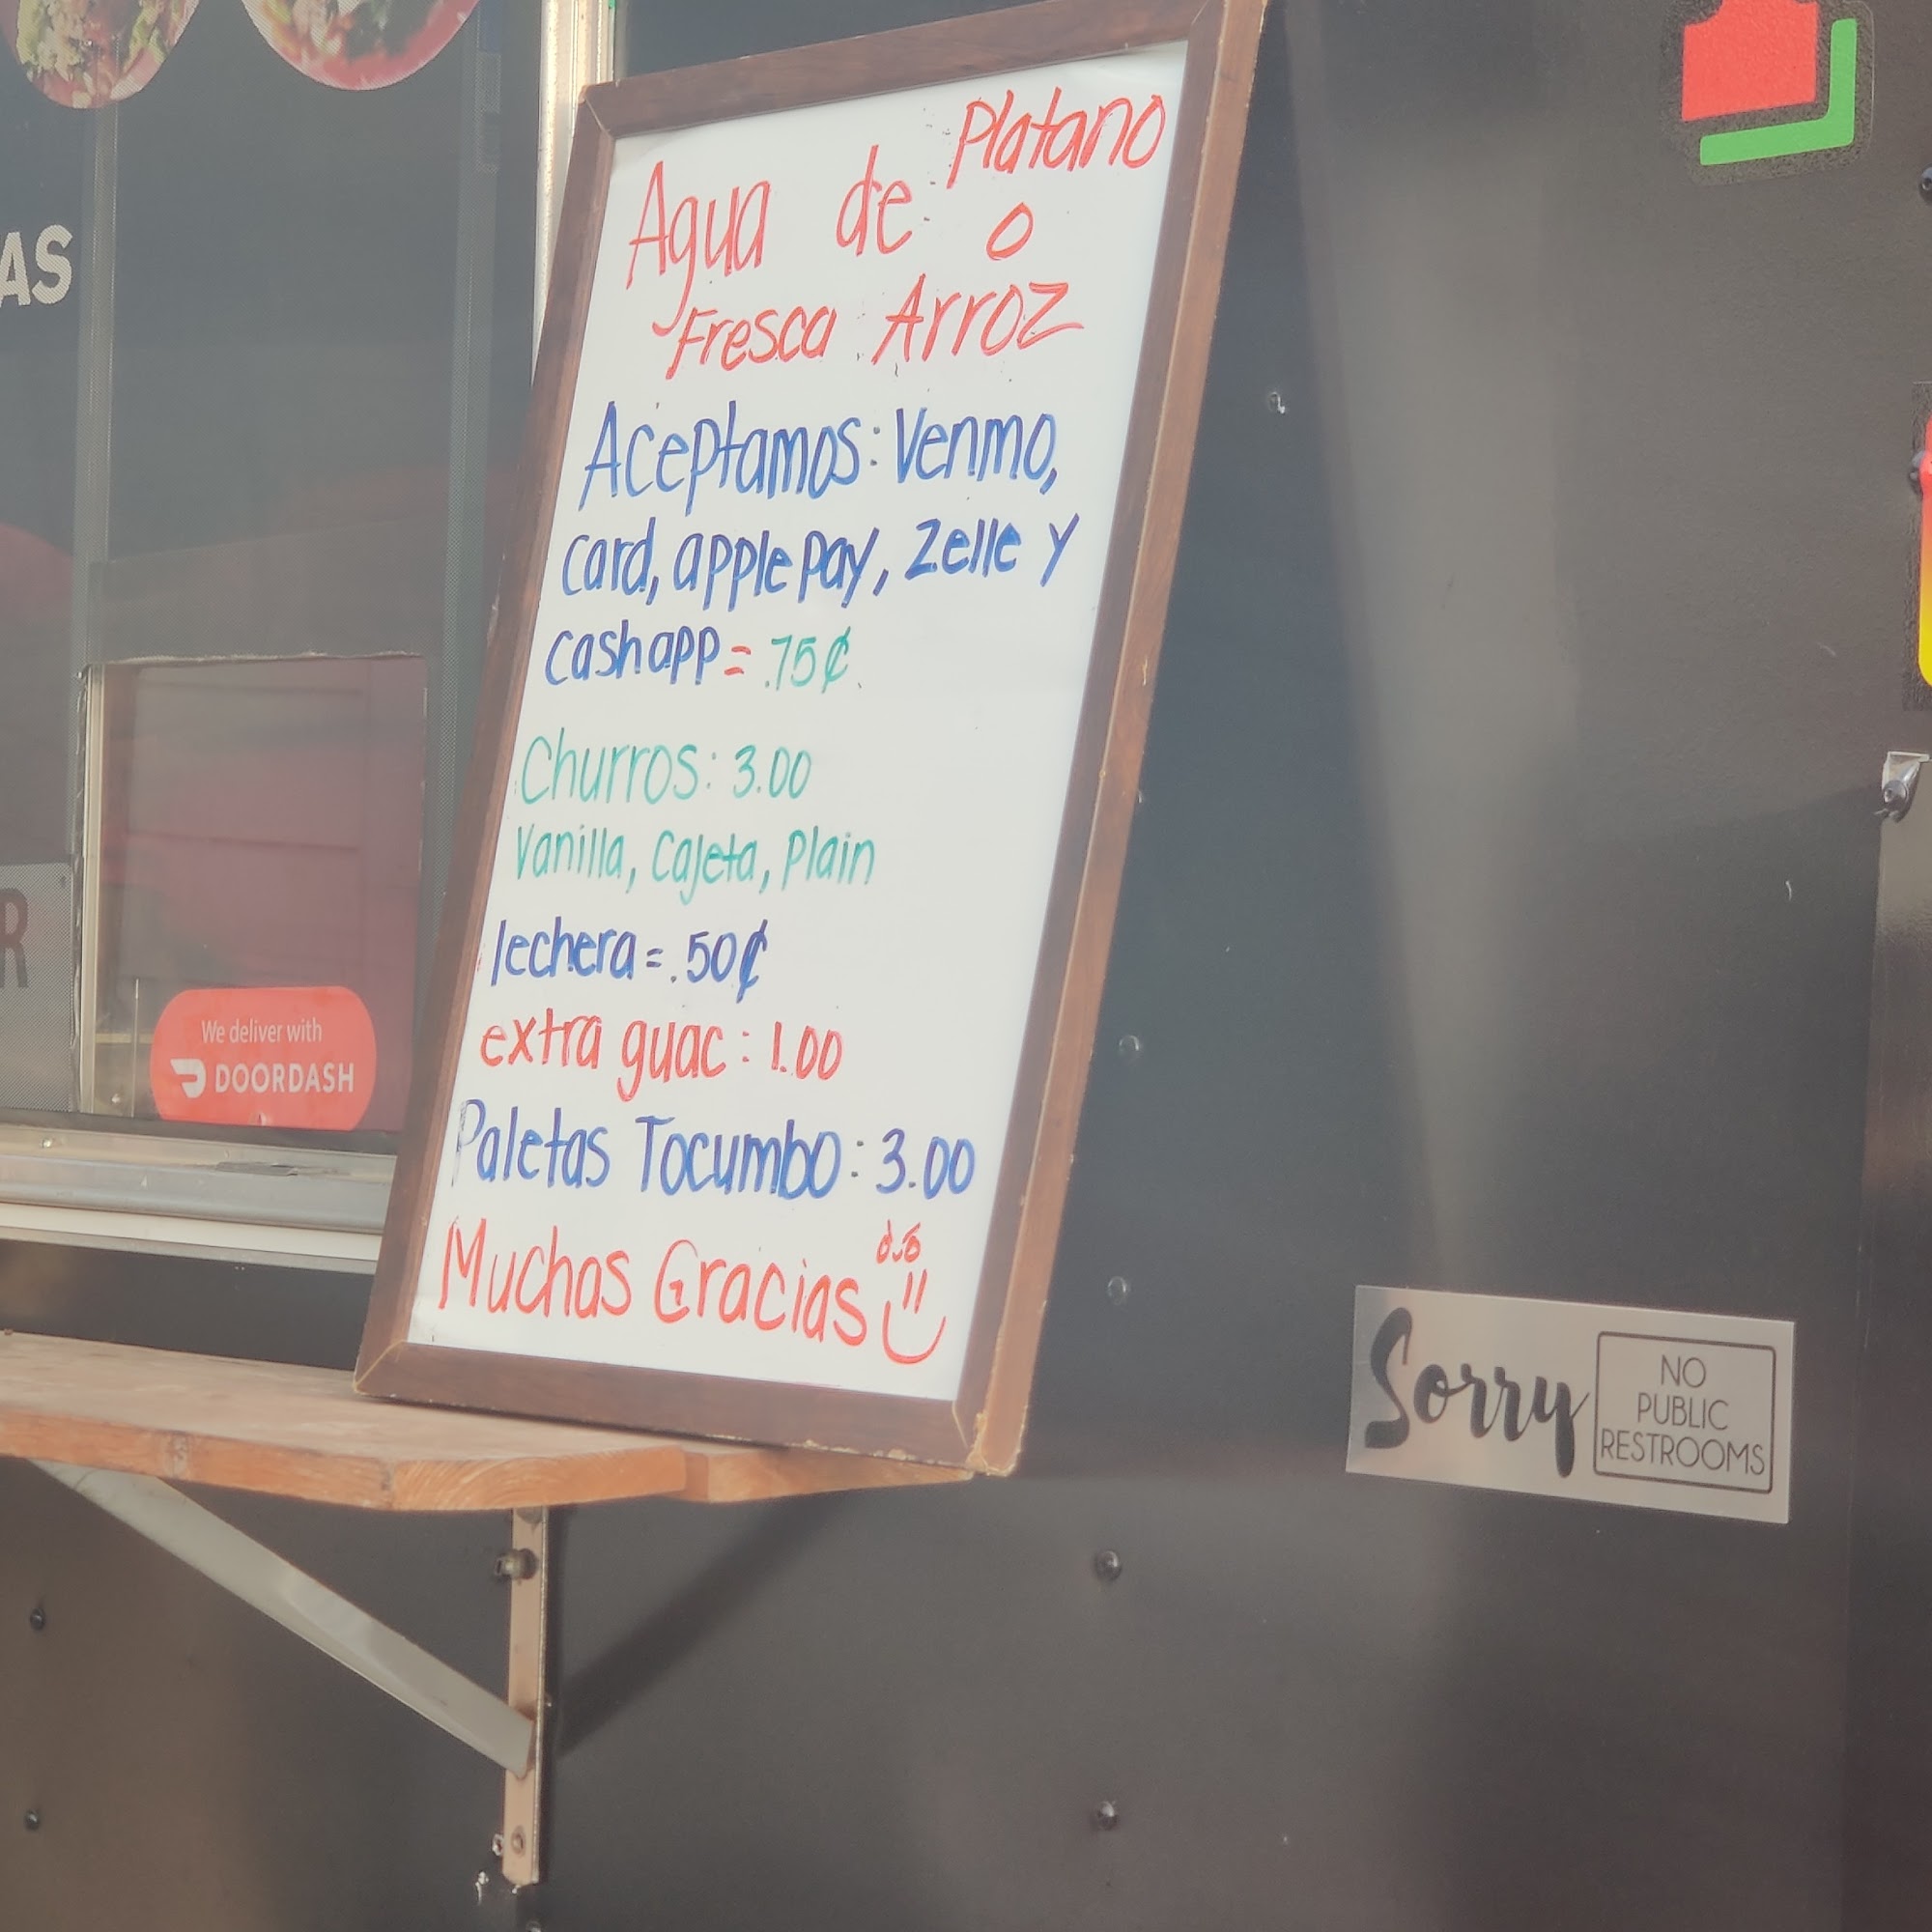 AS
R
We deliver with
DOORDASH
Agua de Platano
o
Fresca Arroz
Aceptamos: Venmo,
card, apple pay, Zelle y
cashapp = .75¢
Churros: 3.00
Vanilla, Cajeta, Plain
lechera = .50¢
extra guac: 1.00
Paletas Tocumbo: 3.00
Muchas Gracias
Sorry
NO
PUBLIC
RESTROOMS